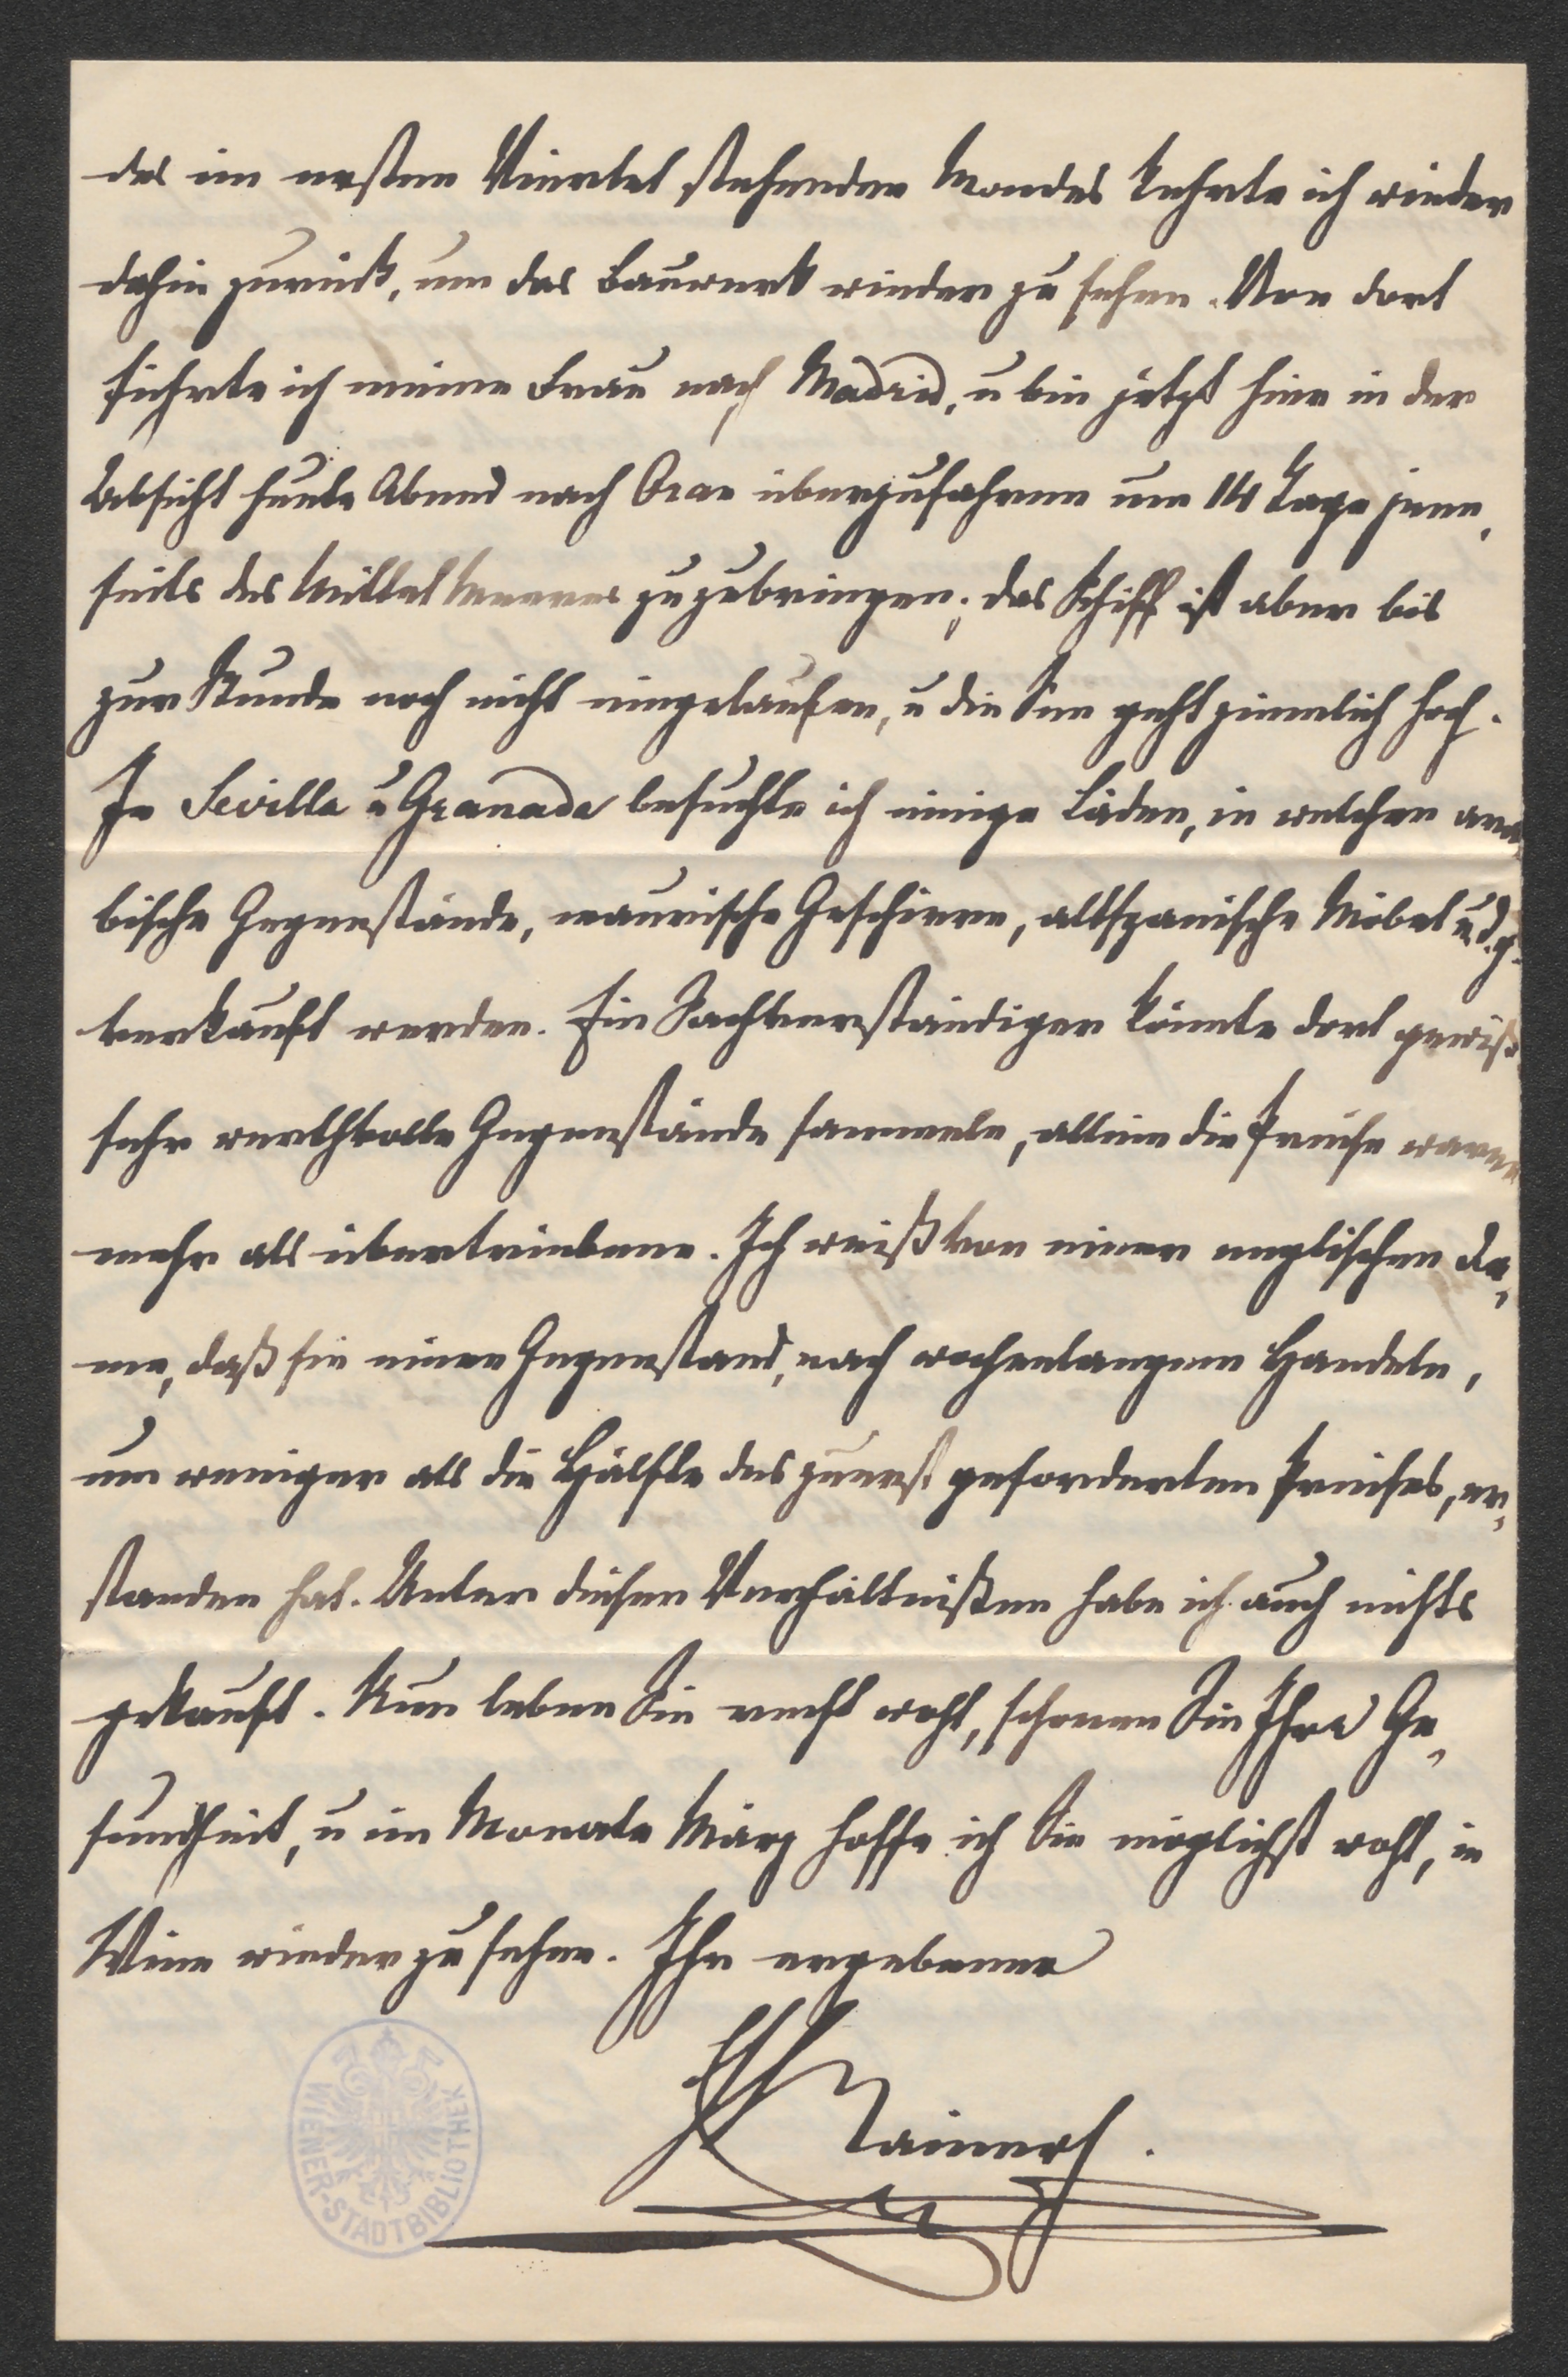 des im ersten Viertel stehenden Mondes kehrte ich wieder
dahin zurück, um das Bauwerk wieder zu sehen. Von dort
führte ich meine Frau nach Madrid, u bin jetzt hier in der
Absicht heute Abend nach Oran überzufahren um 14 Tage jen„
seits des Mittelmeeres zuzubringen; das Schiff ist aber bis
zur Stunde noch nicht eingelaufen, u die See geht ziemlich hoch.
In Sevilla u Granada besuchte ich einige Läden, in welchen ara„
bische Gegenstände, maurische Geschirre, altspanische Möbel u. d. g.
verkauft werden. Ein Sachverständiger könnte dort gewiß
sehr werthvolle Gegenstände sammeln, allein die Preise waren
mehr als übertriebene. Ich weiß von einer englischen Da„
me, daß sie einen Gegenstand, nach wochenlangem Handeln,
um weniger als die Hälfte des zuerst geforderten Preises, er„
standen hat. Unter diesen Verhältnißen habe ich auch nichts
gekauft. Nun leben Sie recht wohl, schonen Sie Ihre Ge„
sundheit, u im Monate März hoffe ich Sie möglichst wohl, in
Wien wieder zu sehen. Ihr ergebener
Rainer
WIENER-STADTBIBLIOTHEK